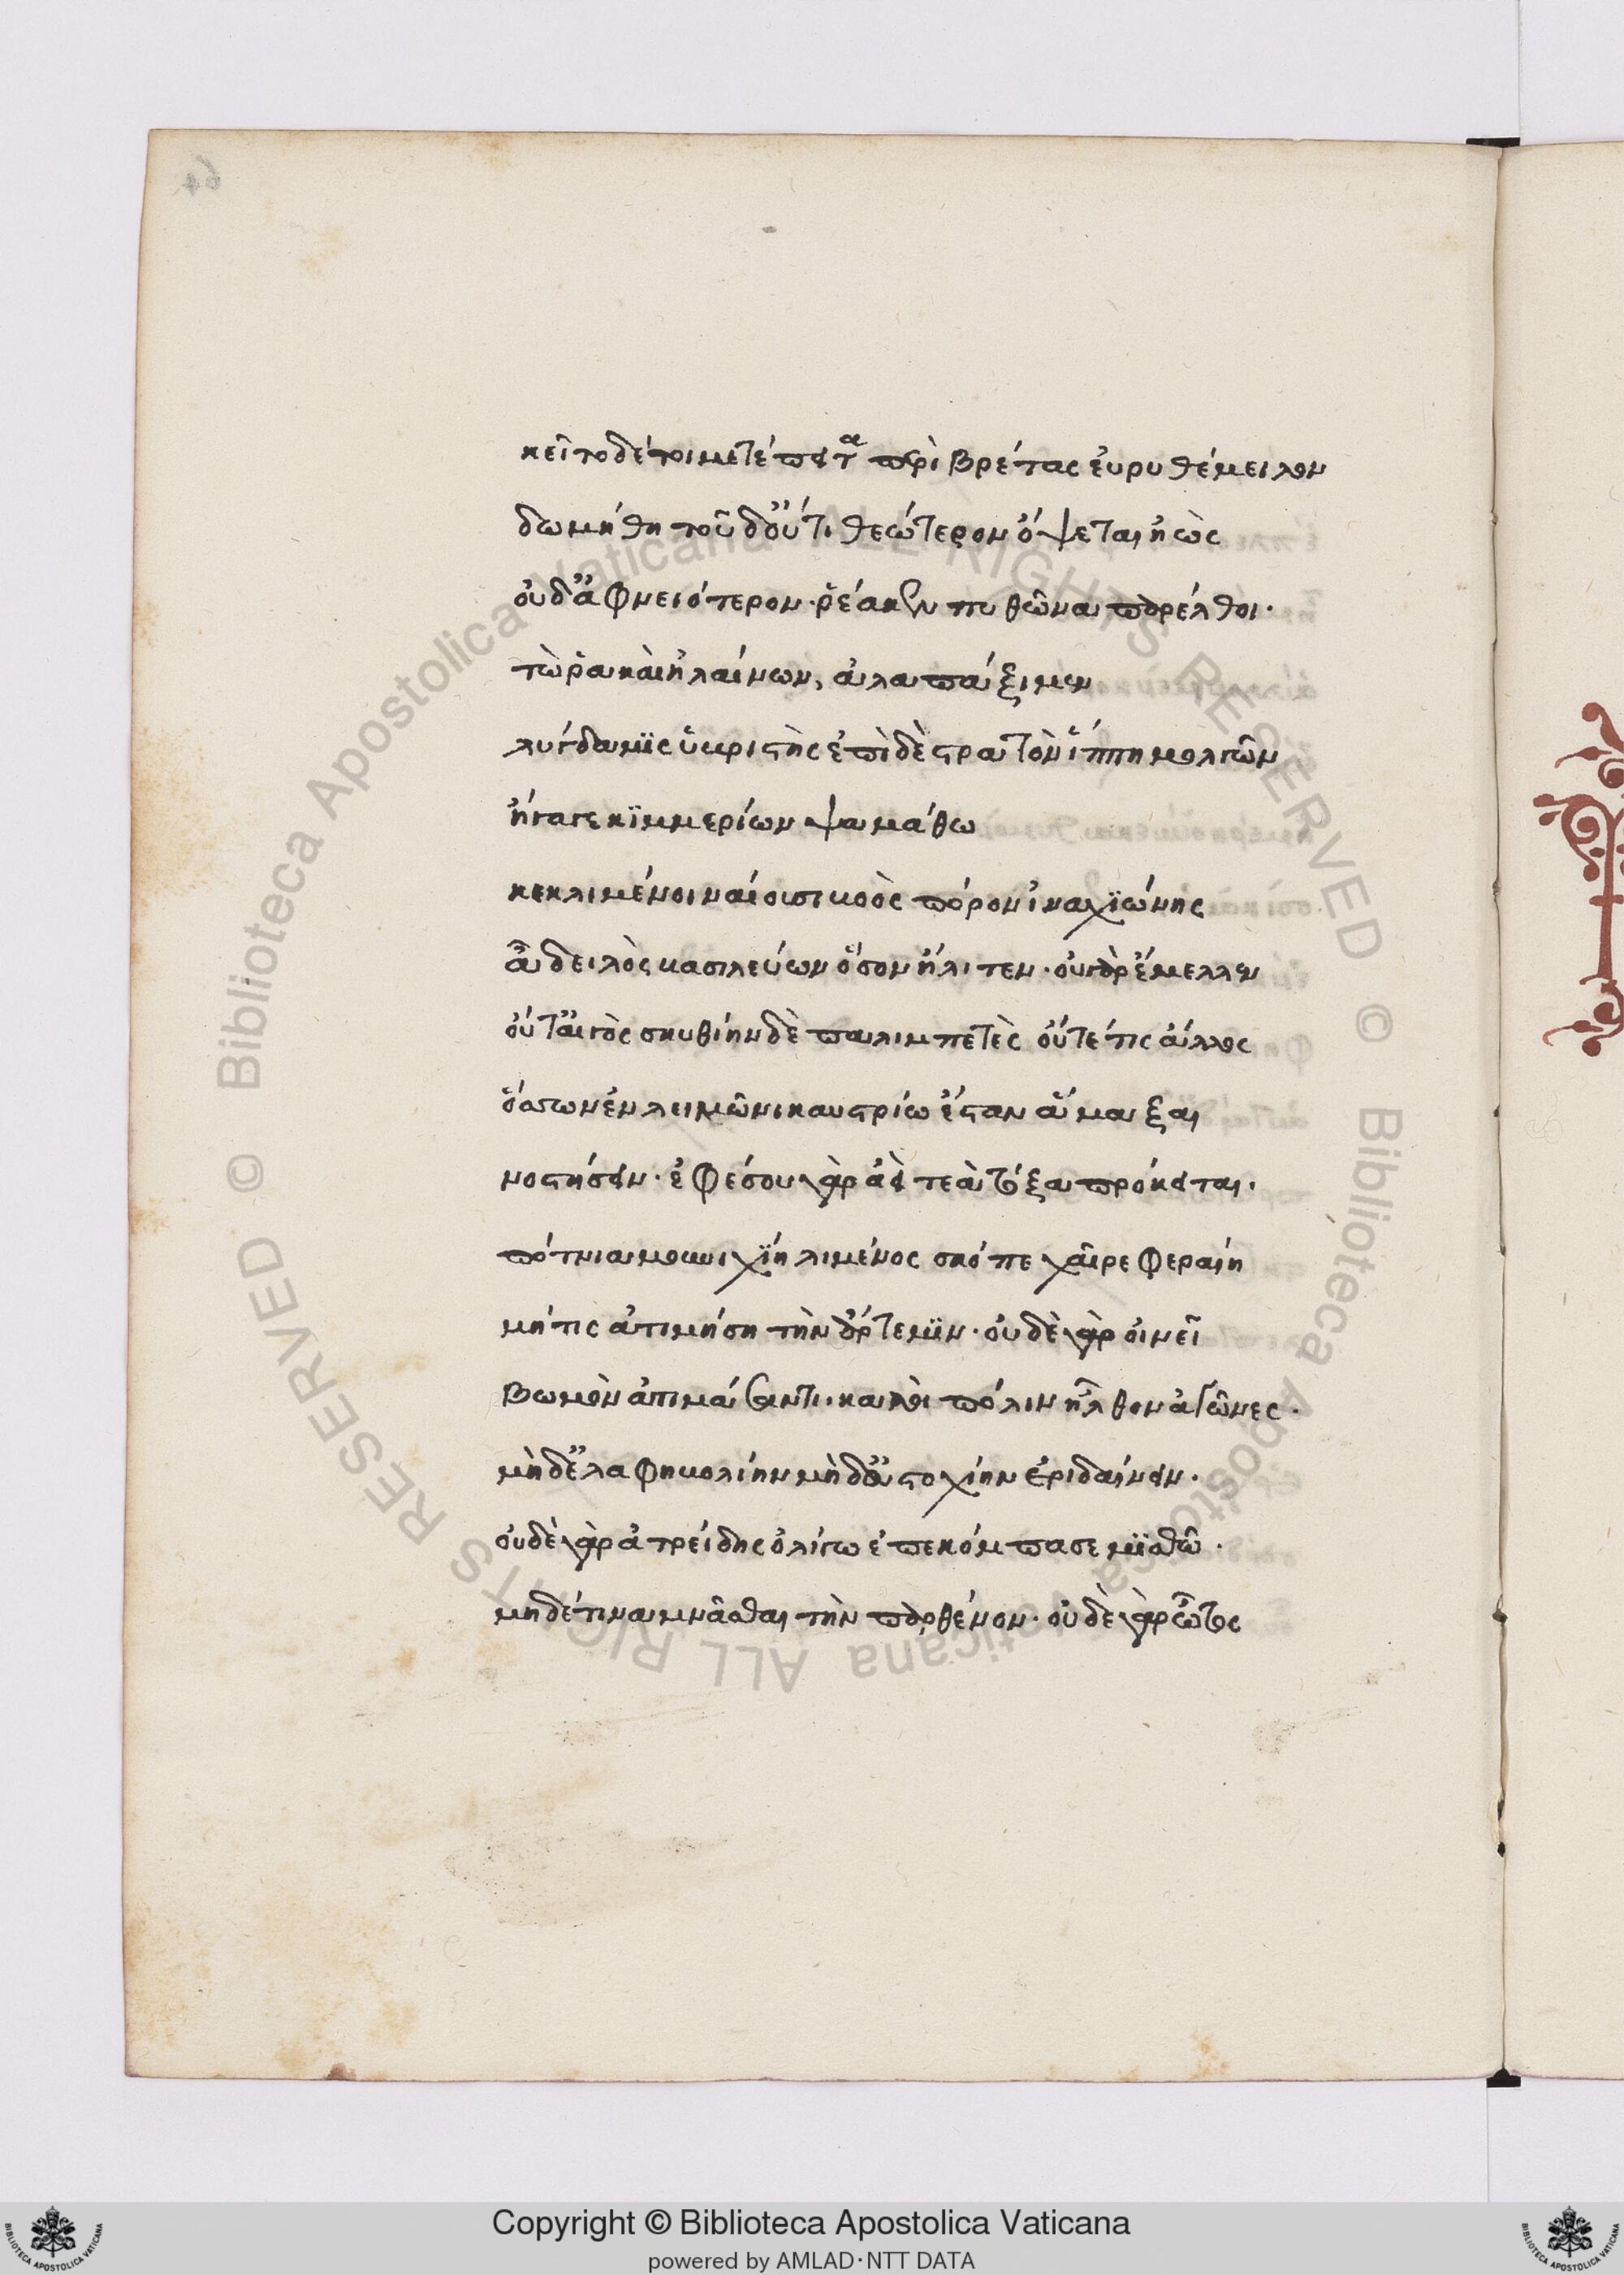 κεῖτο δέ τοι μετέπειτα περὶ βρέτας εὐρυθέμειλον
δωμήθη τοῦ δ' οὔτι θεώτερον ὄψεται ἠὼς
οὐδ' ἀφνειότερον· ῥέα κεν πυθῶνα παρέλθοι·
τῶ ῥα καὶ ἠλαίνων, ἀλαπαξέμεν
λύγδαμις ὑβριστὴς ἐπὶ δὲ στρατὸν ἱππημολγῶν
ἤγαγε κϊμμερίων ψαμάθω
κεκλιμένοι ναίουσι βοὸς πόρον ἰναχϊώνης
ἆ δειλὸς βασιλεύων ὅσον ἤλιτεν· οὐ γὰρ ἔμελλεν
οὔτ' αὐτὸς σκυθίηνδε παλιμπετὲς οὔτέ τις ἄλλος
ὅσσων ἐν λειμῶνι καυστρίω ἔσταν ἅμαξαι
νοστήσειν· ἐφέσου γὰρ ἀεὶ τεὰ τόξα πρόκειται·
πότνια μουνιχϊη λιμένος σκόπε χαῖρε φεραίη
μή τις ἀτιμήση τὴν ἄρτεμϊν· οὐδὲ γὰρ οἰνεῖ
βωμὸν ἀτιμάσαντι· καλοὶ πόλιν ἦλθον ἀγῶνες·
μὴ δ' ἐλαφηβολίην μὴ δ' εὐστοχίην ἐριδαίνειν·
οὐδὲ γὰρ ἀτρείδης ὀλίγω ἐπεκόμπασε μϊσθῶ·
μηδέ τινα μνᾶσθαι τὴν παρθένον· οὐδὲ γὰρ ὦτος
Copyright © Biblioteca Apostolica Vaticana
powered by AMLAD·NTT DATA
© Biblioteca Apostolica Vaticana ALL RIGHTS RESERVED © Biblioteca Apostolica Vaticana ALL RIGHTS RESERVED
64